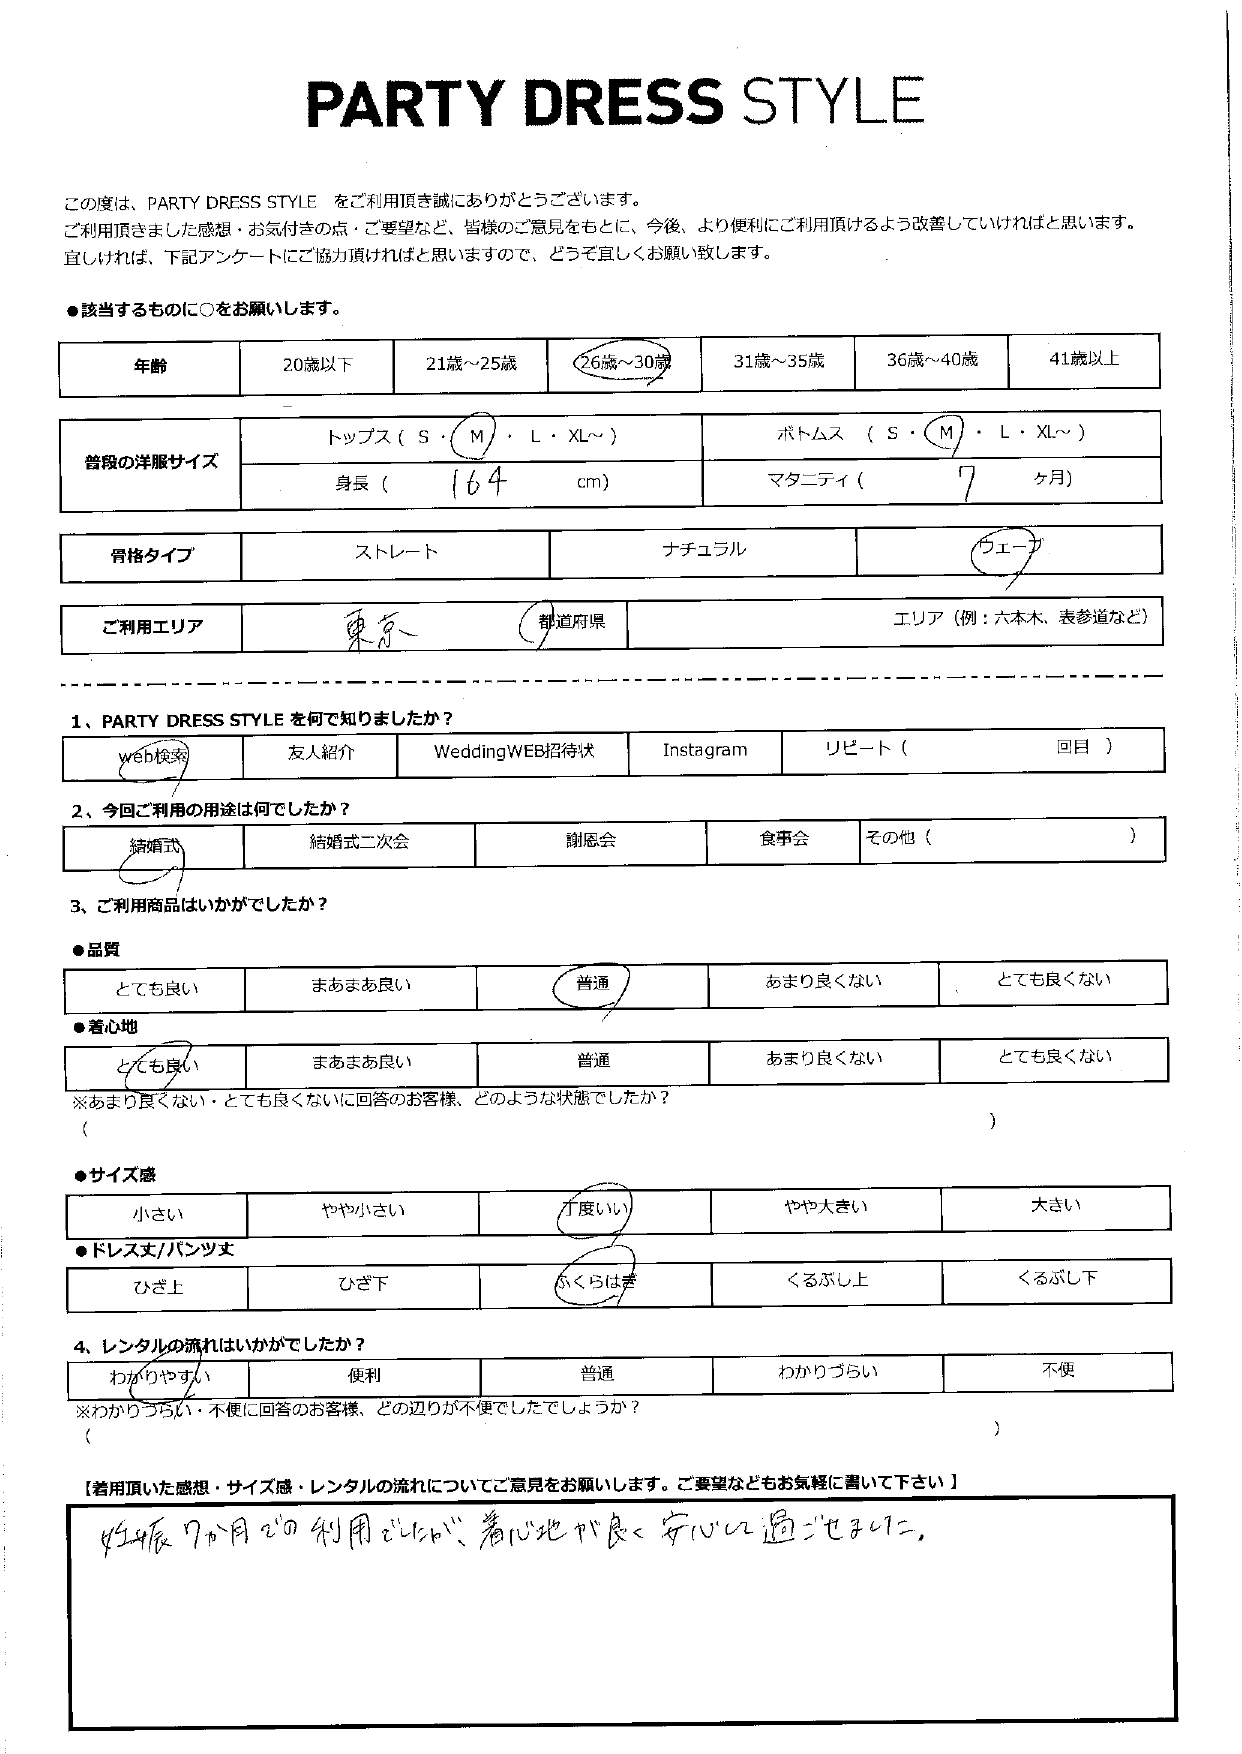 PARTY DRESS STYLE
この度は、PARTY DRESS STYLE をご利用頂き誠にありがとうございます。
ご利用頂きました感想・お気付きの点・ご要望など、皆様のご意見をもとに、今後、より便利にご利用頂けるよう改善していければと思います。
宜しければ、下記アンケートにご協力頂ければと思いますので、どうぞ宜しくお願い致します。
●該当するものに○をお願いします。
年齢 20歳以下 21歳～25歳 26歳～30歳 31歳～35歳 36歳～40歳 41歳以上
普段の洋服サイズ
トップス ( S ・ M ・ L ・ XL～ ) ボトムス ( S ・ M ・ L ・ XL～ )
身長 ( 164 cm) マタニティ ( 7 ケ月)
骨格タイプ ストレート ナチュラル ウェーブ
ご利用エリア 東京 都道府県 エリア（例：六本木、表参道など）
1、PARTY DRESS STYLE を何で知りましたか？
web検索 友人紹介 WeddingWEB招待状 Instagram リピート ( 回目 )
2、今回ご利用の用途は何でしたか？
結婚式 結婚式二次会 謝恩会 食事会 その他 ( )
3、ご利用商品はいかがでしたか？
●品質
とても良い まあまあ良い 普通 あまり良くない とても良くない
●着心地
とても良い まあまあ良い 普通 あまり良くない とても良くない
※あまり良くない・とても良くないに回答のお客様、どのような状態でしたか？
( )
●サイズ感
小さい やや小さい 丁度いい やや大きい 大きい
●ドレス丈/パンツ丈
ひざ上 ひざ下 ふくらはぎ くるぶし上 くるぶし下
4、レンタルの流れはいかがでしたか？
わかりやすい 便利 普通 わかりづらい 不便
※わかりづらい・不便に回答のお客様、どの辺りが不便でしたでしょうか？
( )
【着用頂いた感想・サイズ感・レンタルの流れについてご意見をお願いします。ご要望などもお気軽に書いて下さい 】
妊娠7か月での利用でしたが、着心地が良く安心して過ごせました。